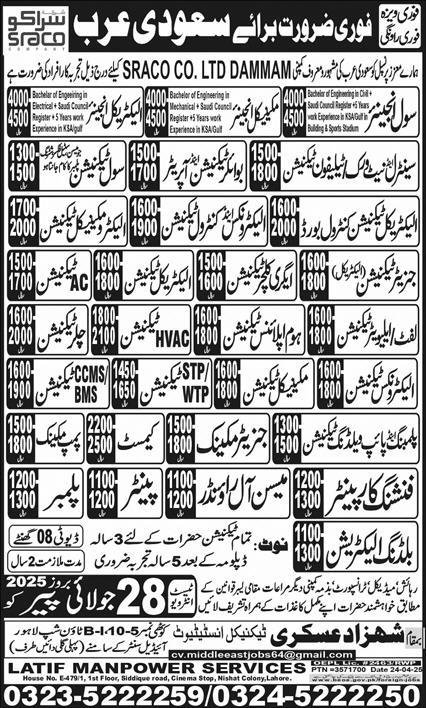 فوری ویزہ
فوری روانگی
فوری ضرورت برائے سعودی عرب
سراکو
SRACO
COMPANY
ہمارے معزز پرنسپل کو سعودی عرب کی مشہور و معروف کمپنی SRACO CO. LTD DAMMAM کیلئے درج ذیل تجربہ کار افراد کی ضرورت ہے
سول انجینئر
Bachelor of Engineering in Civil + Saudi Council Register +5 Years work Experience in KSA/Gulf in Building & Sports Stadium
4000
4500
مکینیکل انجینئر
Bachelor of Engineering in Mechanical + Saudi Council Register +5 Years work Experience in KSA/Gulf
4000
4500
الیکٹریکل انجینئر
Bachelor of Engineering in Electrical + Saudi Council Register +5 Years work Experience in KSA/Gulf
4000
4500
سینٹرل نیٹ ورک/ٹیلیفون ٹیکنیشن 1500 1800
بوائلر ٹیکنیشن اینڈ آپریٹر 1500 1700
سول ٹیکنیشن 1300 1500
الیکٹریکل ٹیکنیشن کنٹرول بورڈ 1600 2000
الیکٹرونکس اینڈ کنٹرول ٹیکنیشن 1600 1900
الیکٹرو مکینیکل ٹیکنیشن 1700 2000
جنریٹر ٹیکنیشن (الیکٹریکل) 1600 1800
ایگری کلچر ٹیکنیشن 1500 1600
الیکٹریکل ٹیکنیشن 1600 1800
AC ٹیکنیشن 1500 1700
لفٹ/ایلیویٹر ٹیکنیشن 1600 1800
ہوم اپلائنس ٹیکنیشن 1400 1800
HVAC ٹیکنیشن 1800 2100
چلر ٹیکنیشن 1600 2000
الیکٹرونکس ٹیکنیشن 1600 1800
مکینیکل ٹیکنیشن 1600 1800
STP/WTP ٹیکنیشن 1450 1650
CCMS/BMS ٹیکنیشن 1600 1900
پلمبنگ اینڈ پائپ ویلڈنگ ٹیکنیشن 1300 1500
جنریٹر مکینک 1500 1800
کیمسٹ 2200 2500
پمپ مکینک 1500 1800
فنشنگ کارپینٹر 1200 1300
میسن آل راؤنڈر 1100 1200
پینٹر 1100 1200
پلمبر 1200 1300
بلڈنگ الیکٹریشن 1100 1300
نوٹ: تمام ٹیکنیشن حضرات کے لئے 3 سالہ
ڈپلومہ کے بعد 5 سالہ تجربہ ضروری
ڈیوٹی 08 گھنٹے
مدت ملازمت 2 سال
رہائش/میڈیکل/ٹرانسپورٹ بذمہ کمپنی دیگر مراعات مقامی لیبر قوانین کے
مطابق خواہشمند حضرات اپنے مکمل کاغذات کے ہمراہ تشریف لائیں
ٹیسٹ
انٹرویو
28 جولائی بروز پیر 2025 کو
بمقام
شہزاد عسکری ٹیکنیکل انسٹیٹیوٹ
کوٹھی نمبر 5-10-B-I ٹاؤن شپ لاہور
cv.middleeastjobs64@gmail.com
OEPL Lic. # 2463/RWP
PTN =3571700 Date 24-04-25
LATIF MANPOWER SERVICES
House No. E-479/1, 1st Floor, Siddique road, Cinema Stop, Nishat Colony,Lahore.
0323-5222259/0324-5222250